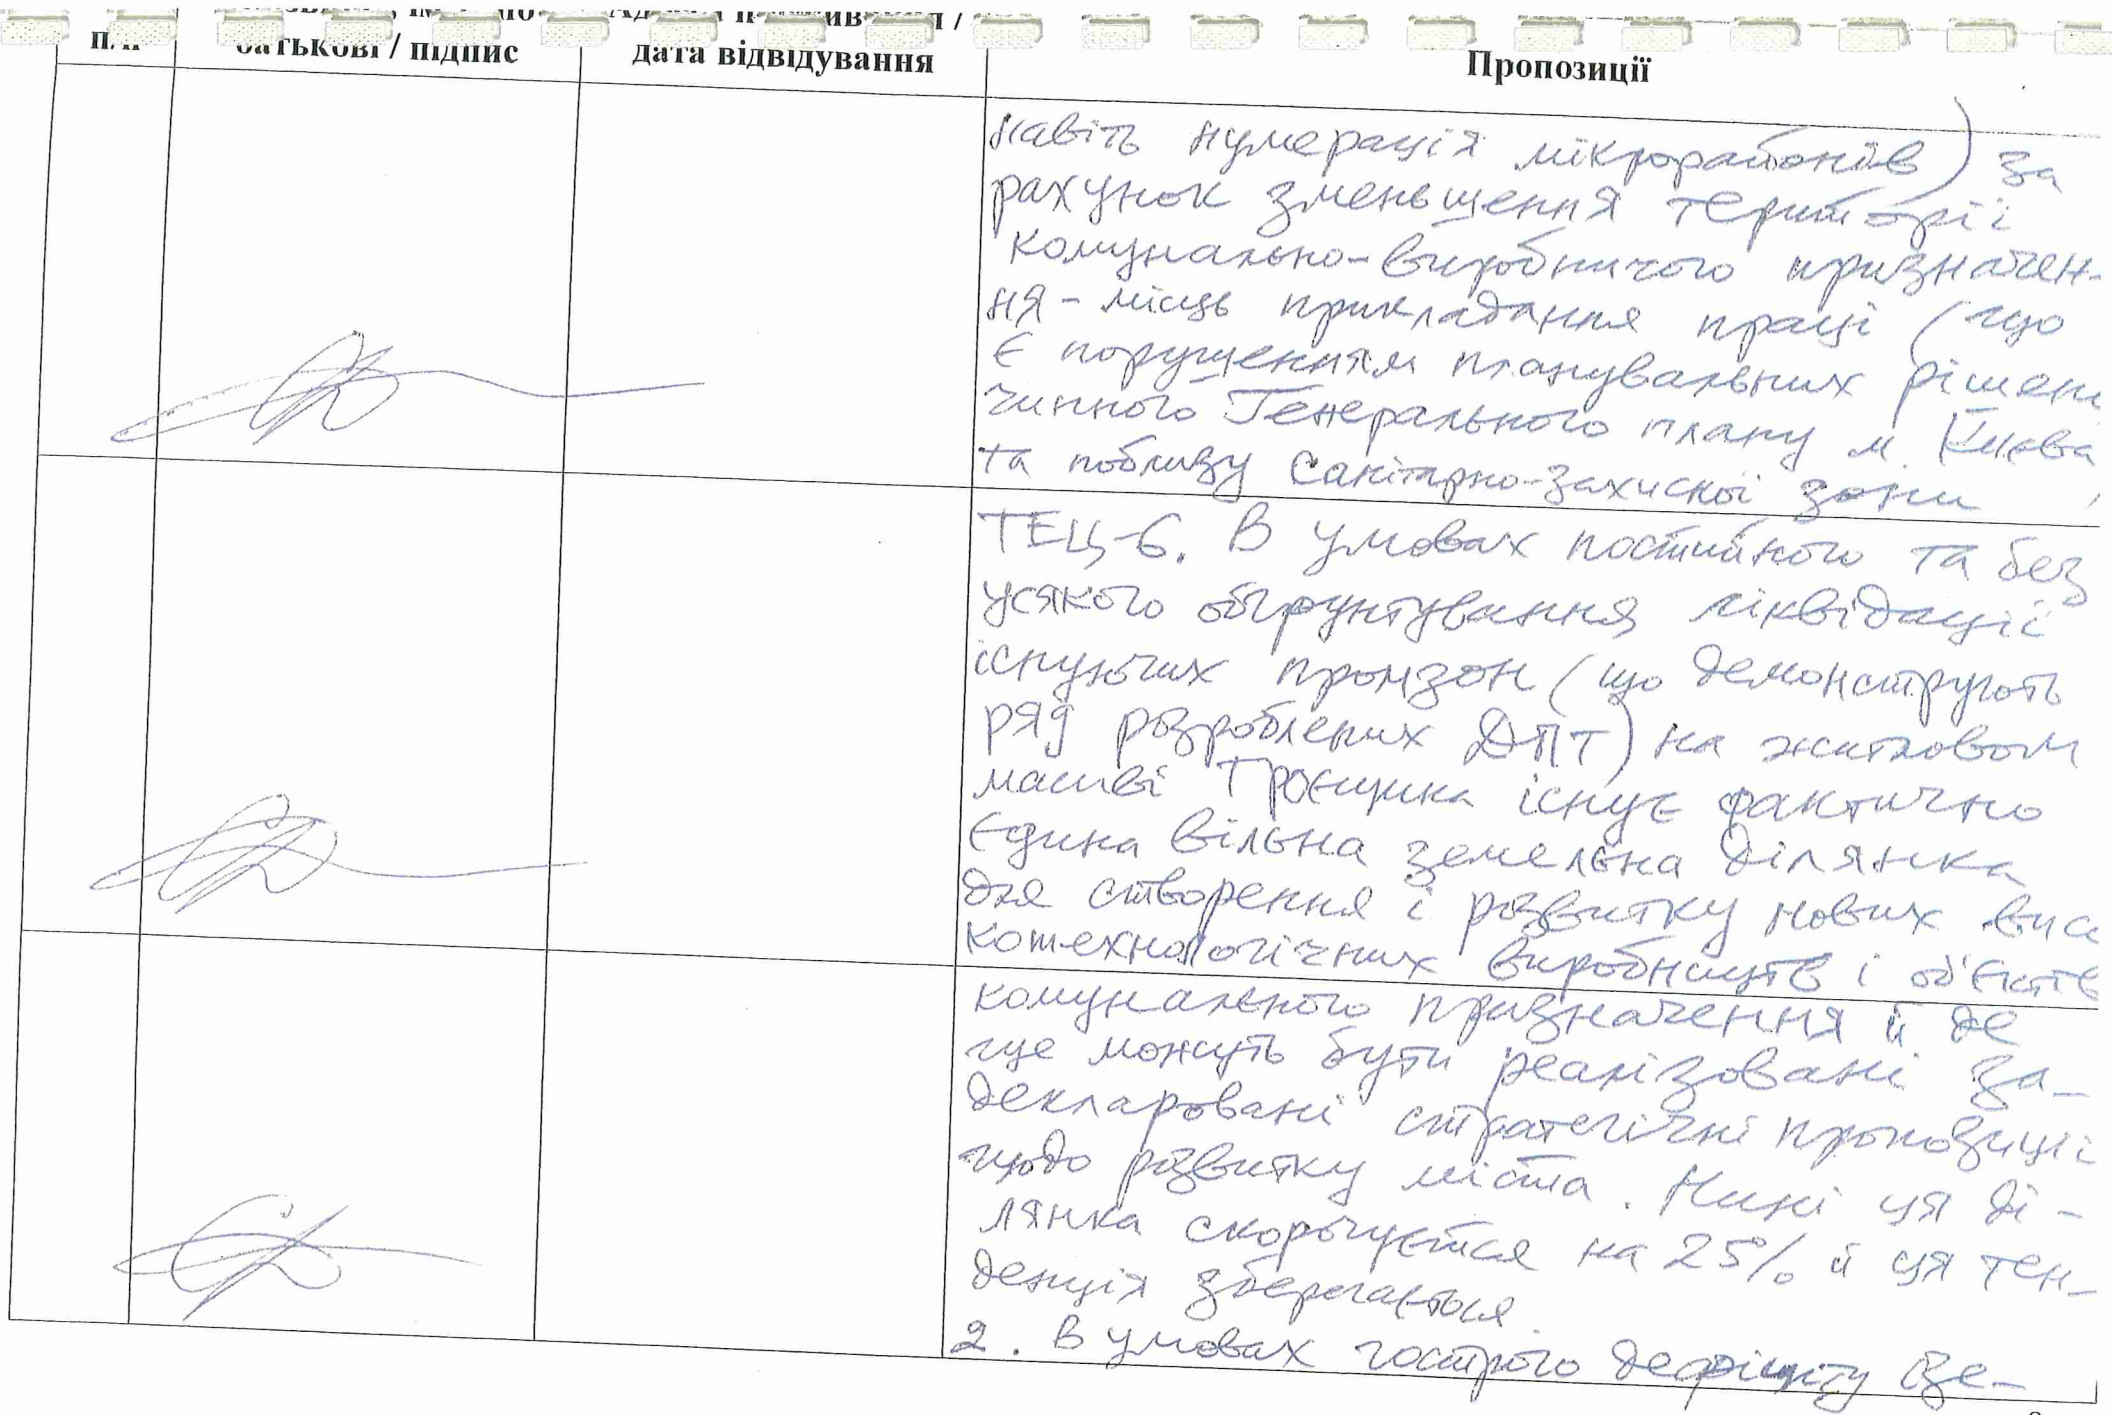 п/п
батькові / підпис
дата відвідування
Пропозиції
навіть нумерація мікрорайонів) за
рахунок зменьшення території
комунально-виробничого призначен-
ня - місць прикладання праці (що
є порушенням планувальних рішень
чинного Генерального плану м. Києва
та поблизу санітарно-захисної зони
ТЕЦ-6. В умовах постійного та без
усякого обґрунтування ліквідації
існуючих промзон (що демонструють
ряд розроблених ДПТ) на житловом
масиві Троєщина існує фактично
єдина вільна земельна ділянка
для створення і розвитку нових висо
котехнологічних виробництв і об'єктів
комунального призначення й де
ще можуть бути реалізовані за-
декларовані стратегічні пропозиції
щодо розвитку міста. Нині ця ді-
лянка скорочується на 25% й ця тен-
денція зберігається.
2. В умовах гострого дефіциту зе-